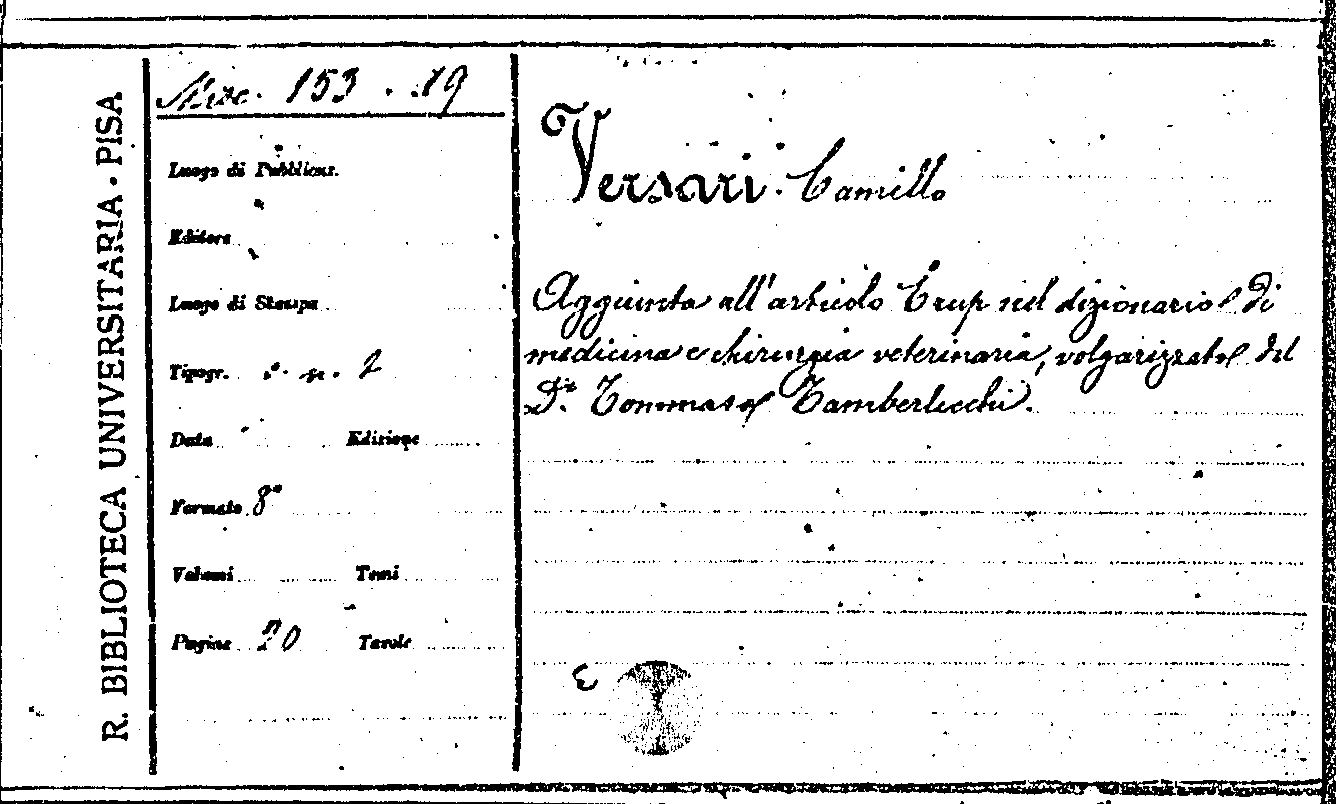 R. BIBLIOTECA UNIVERSITARIA - PISA
Misc. 153 . 19
Luogo di Pubblicaz.
Editore
Luogo di Stampa
Tipogr. s. n. t
Data Edizione
Formato 8°
Volumi Tomi
Pagine 20 Tavole
Versari Camillo
Aggiunta all'articolo Crup nel dizionario di
medicina e chirurgia veterinaria, volgarizzato del
Dr. Tommaso Tamberlicchi.